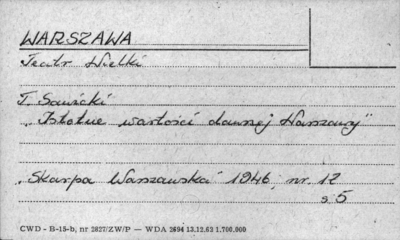 WARSZAWA
Teatr Wielki
T. Sawicki
„Istotne wartości dawnej Warszawy”
„Skarpa Warszawska” 1946, nr. 12
s. 5
CWD - B-15-b, nr 2827/ZW/P — WDA 2694 13.12.62 1.700.000